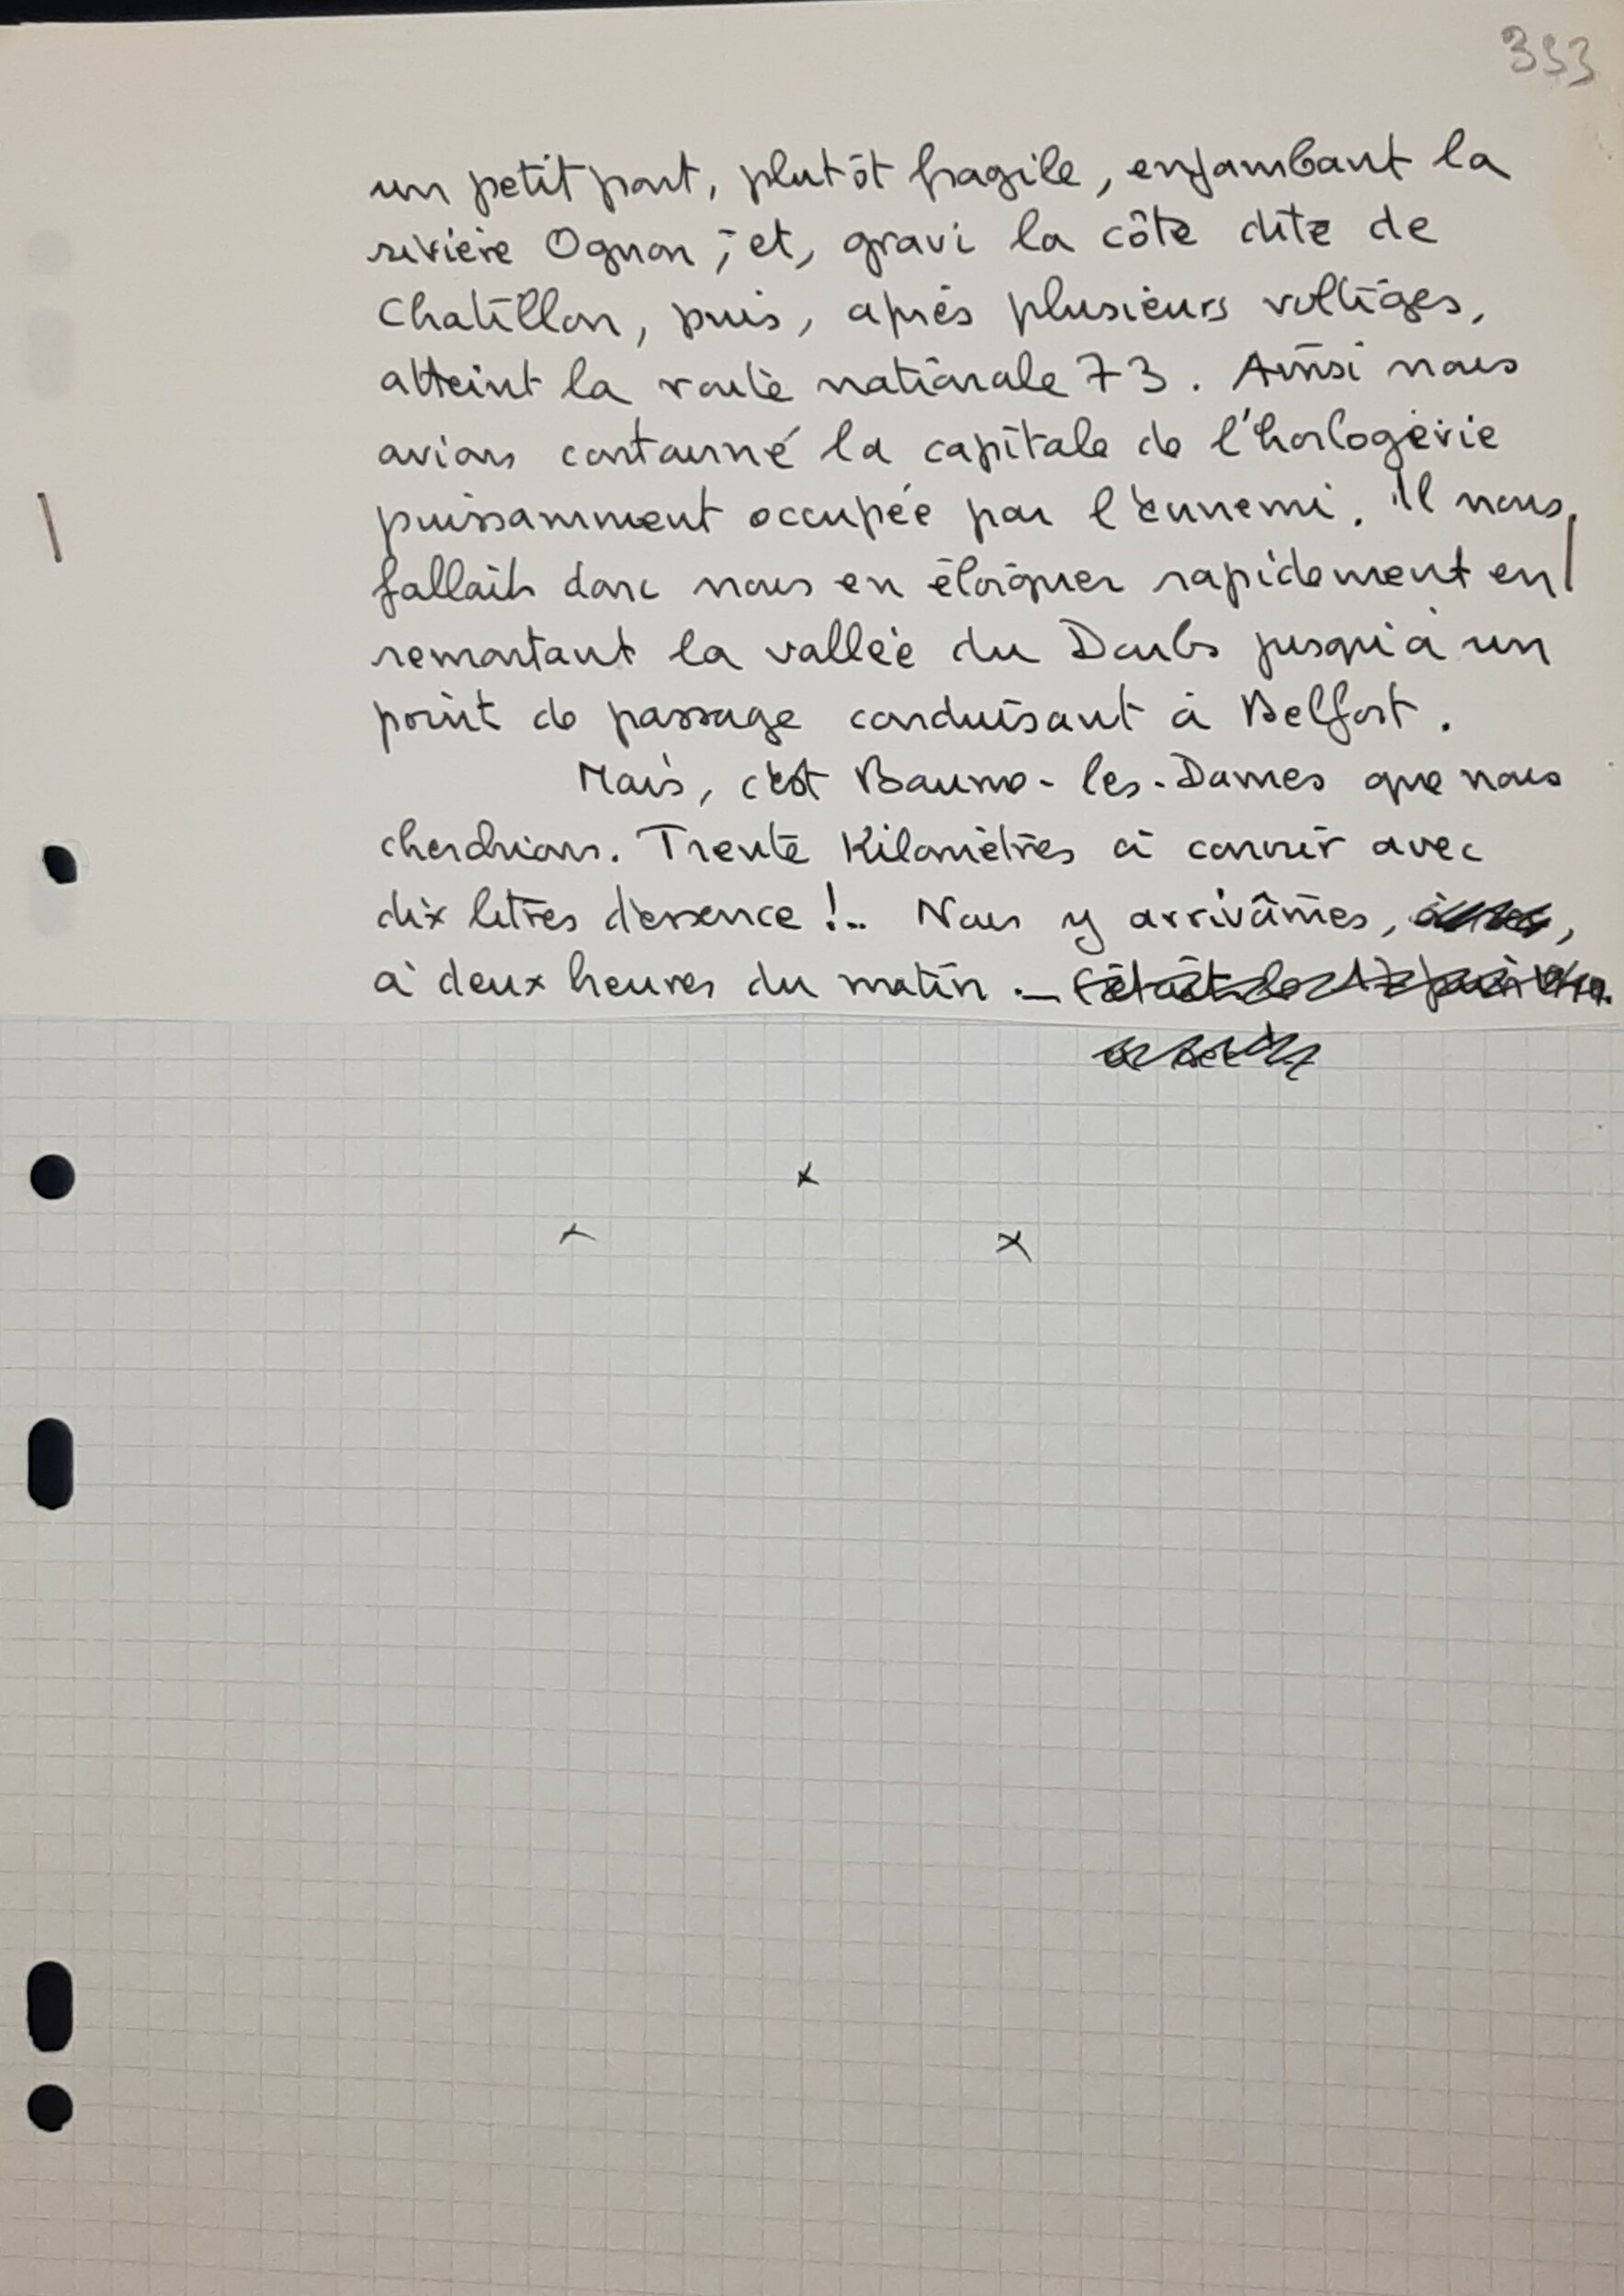 353
un petit pont, plutôt fragile, enjambant la
rivière Ognon ; et, gravi la côte dite de
Chatillon, puis, après plusieurs voltiges,
atteint la route nationale 73. Ainsi nous
avions contourné la capitale de l'horlogerie
puissamment occupée par l'ennemi. Il nous
fallait donc nous en éloigner rapidement en
remontant la vallée du Doubs jusqu'à un
point de passage conduisant à Belfort.
Mais, c'est Baume-les-Dames que nous
cherchions. Trente Kilomètres à couvrir avec
dix litres d'essence !.. Nous y arrivâmes, ,
à deux heures du matin. — C'était le 17 juin
x
x x